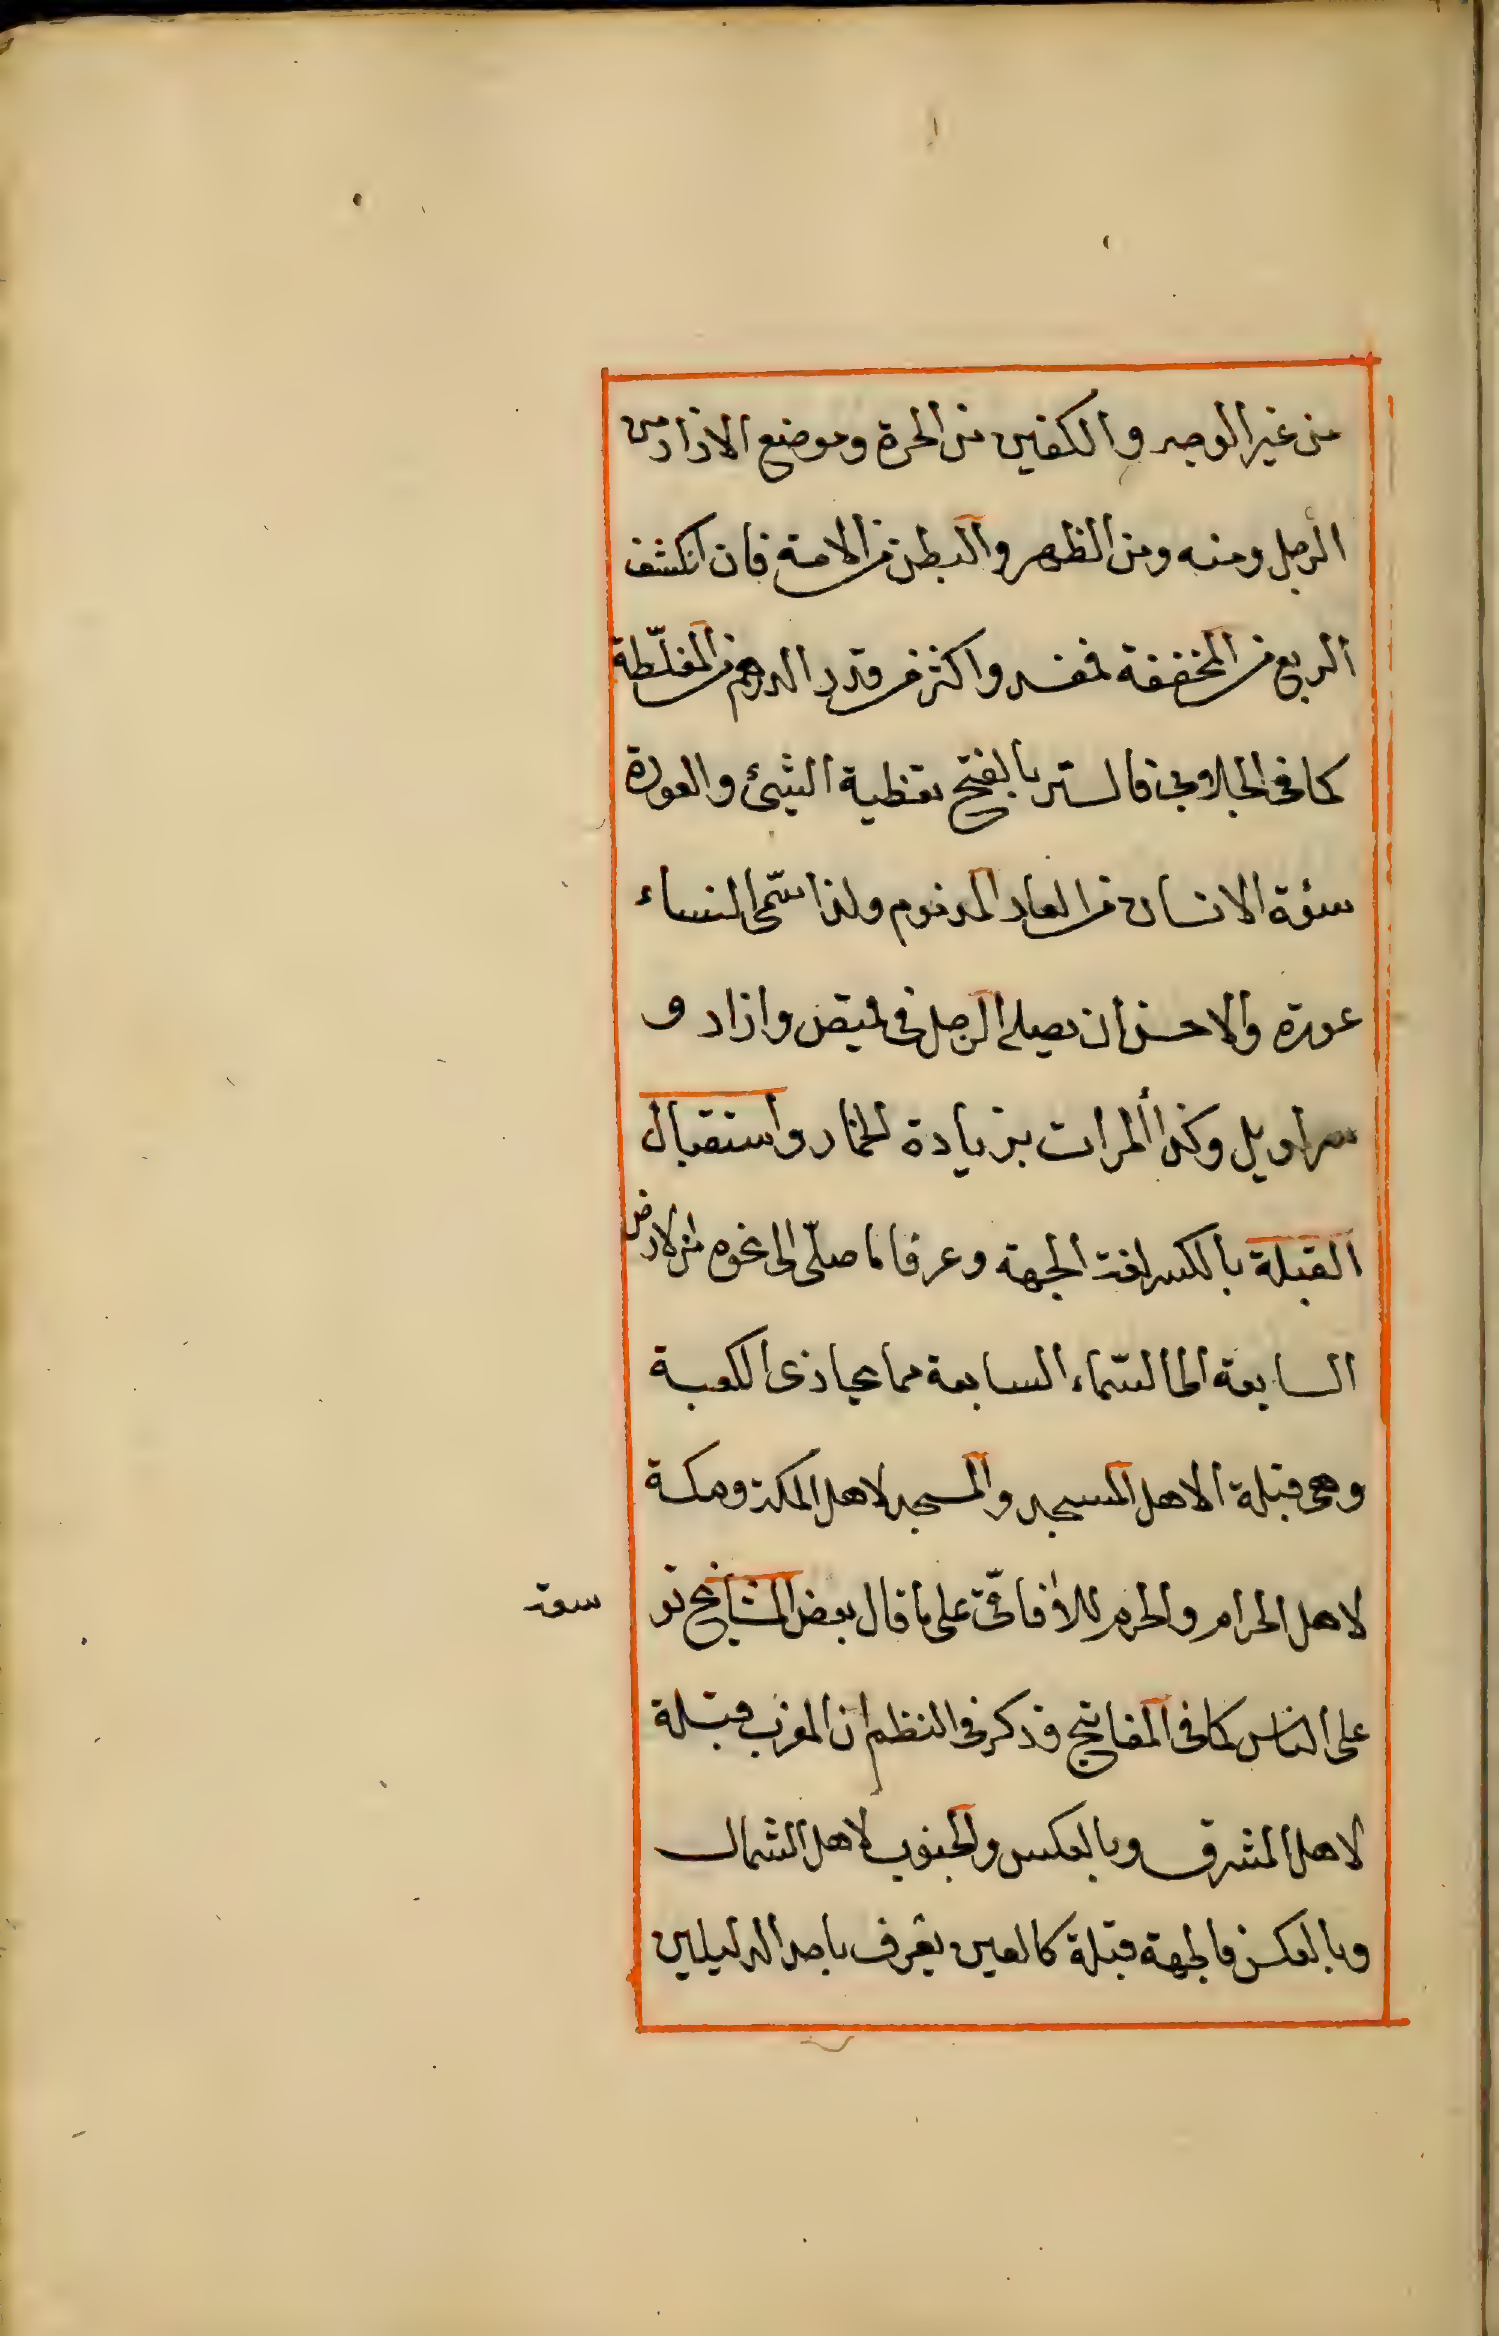 من غير الوجه والكفين من الحرة وموضع الازار من
الرجل ومنه ومن الظهر والبطن من الامة فان انكشف
الربع من المخففة فمفسد واكثر من قدر الدرهم من المغلّظة
كما في الجلابي فالستر بالفتح تغطية الشيئ والعورة
سؤة الانسان من العار المذموم ولذا سمّى النساء
عورة والاحسن ان يصلي الرجل في قميص وازار و
سراويل وكذا المرات بزيادة الخمار واستقبال
القبلة بالكسر لغة الجهة وعرفا ما صلّى الى نحوه من الارض
السابعة الى السّماء السابعة مما يحاذى الكعبة
وهي قبلة الاهل المسجد والمسجد لاهل المكة ومكة
لاهل الحرام والحرم للافاقى على ما قال بعض المشايخ تو
سعة
على الناس كما في المفاتيح وذكر في النظم ان المغرب قبلة
لاهل المشرق وبالعكس والجنوب لاهل الشمال
وبالعكس فالجهة قبلة كالعين يعرف باحد الدليلين